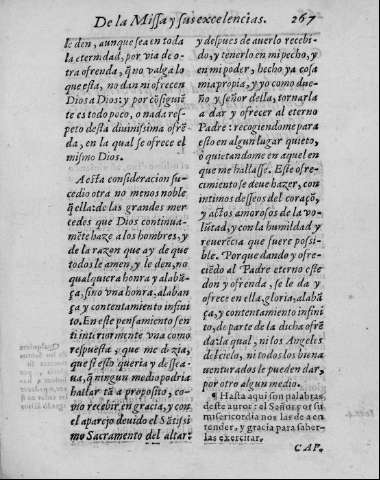 De la Missa y sus excelencias. 267
le den, aunque sea en toda
la eternidad, por via de o-
tra ofrenda, q̃ no valga lo
que esta, no dan ni ofrecen
Dios a Dios: y por cõsiguiẽ
te es todo poco, o nada res-
peto desta diuinissima ofrẽ
da, en la qual se ofrece el
mismo Dios.
A esta consideracion su-
cedio otra no menos noble
q̃ ella: de las grandes mer-
cedes que Dios continua-
mẽte haze a los hombres, y
de la razon que ay de que
todos le amen, y le den, no
qualquiera honra y alabã-
ça, sino vna honra, alaban
ça y contentamiento infini
to. En este pensamiento sen
ti interiormente vna como
respuesta, que me dezia,
que si esto queria y dessea-
ua, q̃ ningun medio podria
hallar tã a proposito, co-
mo recebir en gracia, y con
el aparejo deuido el Sãtissi
mo Sacramento del altar:
y despues de auerlo recebi-
do, y tenerlo en mi pecho, y
en mi poder, hecho ya cosa
mia propia, y yo como due-
ño y señor della, tornarla
a dar y ofrecer al eterno
Padre: recogiendome para
esto en algun lugar quieto,
ò quietandome en aquel en
que me hallasse. Este ofre-
cimiento se deue hazer, con
intimos desseos del coraçõ,
y actos amorosos de la vo-
lũtad, y con la humildad y
reuerẽcia que fuere posi-
ble. Porque dando y ofre-
ciẽdo al Padre eterno este
don y ofrenda, se le da y
ofrece en ella, gloria, alabã
ça, y contentamiento infini
to, de parte de la dicha ofrẽ
da: la qual, ni los Angeles
del cielo, ni todos los biena
uenturados le pueden dar,
por otro algun medio.
¶ Hasta aqui son palabras
deste autor: el Señor por su
misericordia nos las dè a en
tender, y gracia para saber-
las exercitar.
CAP.